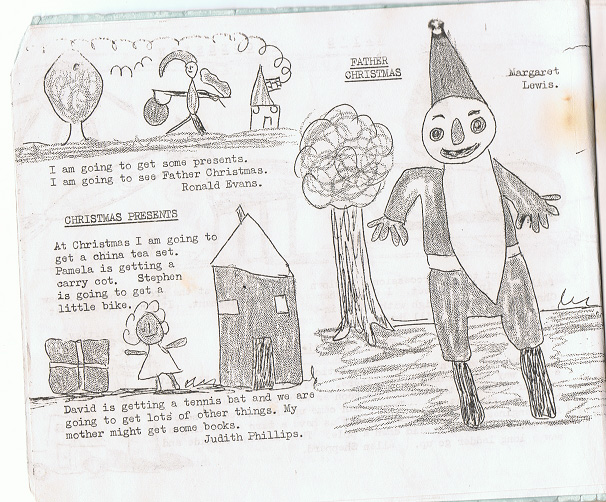 I am going to get some presents.
I am going to see Father Christmas.
Ronald Evans.
CHRISTMAS PRESENTS
At Christmas I am going to
get a china tea set.
Pamela is getting a
carry cot. Stephen
is going to get a
little bike.
David is getting a tennis bat and we are
going to get lots of other things. My
mother might get some books.
Judith Phillips.
FATHER
CHRISTMAS
Margaret
Lewis.